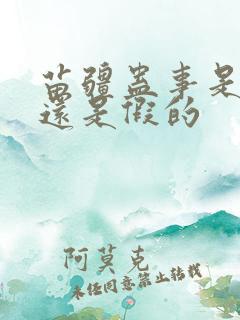 苗疆蛊事是
還是假的
阿莫克
未经同意禁止转载